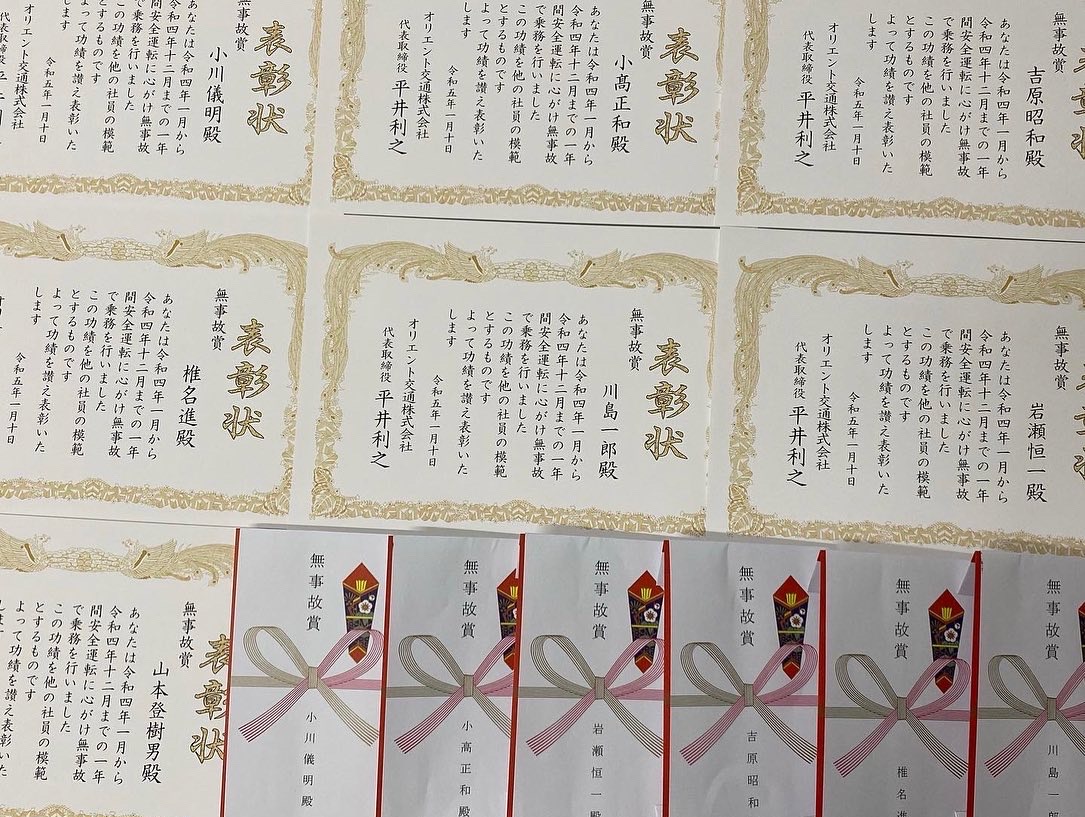 表彰状
無事故賞
小川儀明殿
あなたは令和四年一月から
令和四年十二月までの一年
間安全運転に心がけ無事故
で乗務を行いました
この功績を他の社員の模範
とするものです
よって功績を讃え表彰いた
します
令和五年一月十日
オリエント交通株式会社
代表取締役
表彰状
無事故賞
小髙正和殿
あなたは令和四年一月から
令和四年十二月までの一年
間安全運転に心がけ無事故
で乗務を行いました
この功績を他の社員の模範
とするものです
よって功績を讃え表彰いた
します
令和五年一月十日
オリエント交通株式会社
代表取締役 平井利之
表彰状
無事故賞
吉原昭和殿
あなたは令和四年一月から
令和四年十二月までの一年
間安全運転に心がけ無事故
で乗務を行いました
この功績を他の社員の模範
とするものです
よって功績を讃え表彰いた
します
令和五年一月十日
オリエント交通株式会社
代表取締役 平井利之
表彰状
無事故賞
椎名進殿
あなたは令和四年一月から
令和四年十二月までの一年
間安全運転に心がけ無事故
で乗務を行いました
この功績を他の社員の模範
とするものです
よって功績を讃え表彰いた
します
令和五年一月十日
表彰状
無事故賞
川島一郎殿
あなたは令和四年一月から
令和四年十二月までの一年
間安全運転に心がけ無事故
で乗務を行いました
この功績を他の社員の模範
とするものです
よって功績を讃え表彰いた
します
令和五年一月十日
オリエント交通株式会社
代表取締役 平井利之
表彰状
無事故賞
岩瀬恒一殿
あなたは令和四年一月から
令和四年十二月までの一年
間安全運転に心がけ無事故
で乗務を行いました
この功績を他の社員の模範
とするものです
よって功績を讃え表彰いた
します
令和五年一月十日
オリエント交通株式会社
代表取締役 平井利之
表彰状
無事故賞
山本登樹男殿
あなたは令和四年一月から
令和四年十二月までの一年
間安全運転に心がけ無事故
で乗務を行いました
この功績を他の社員の模範
とするものです
よって功績を讃え表彰いた
します
無事故賞
小川儀明殿
無事故賞
小高正和殿
無事故賞
岩瀬恒一殿
無事故賞
吉原昭和
無事故賞
椎名進
無事故賞
川島一郎